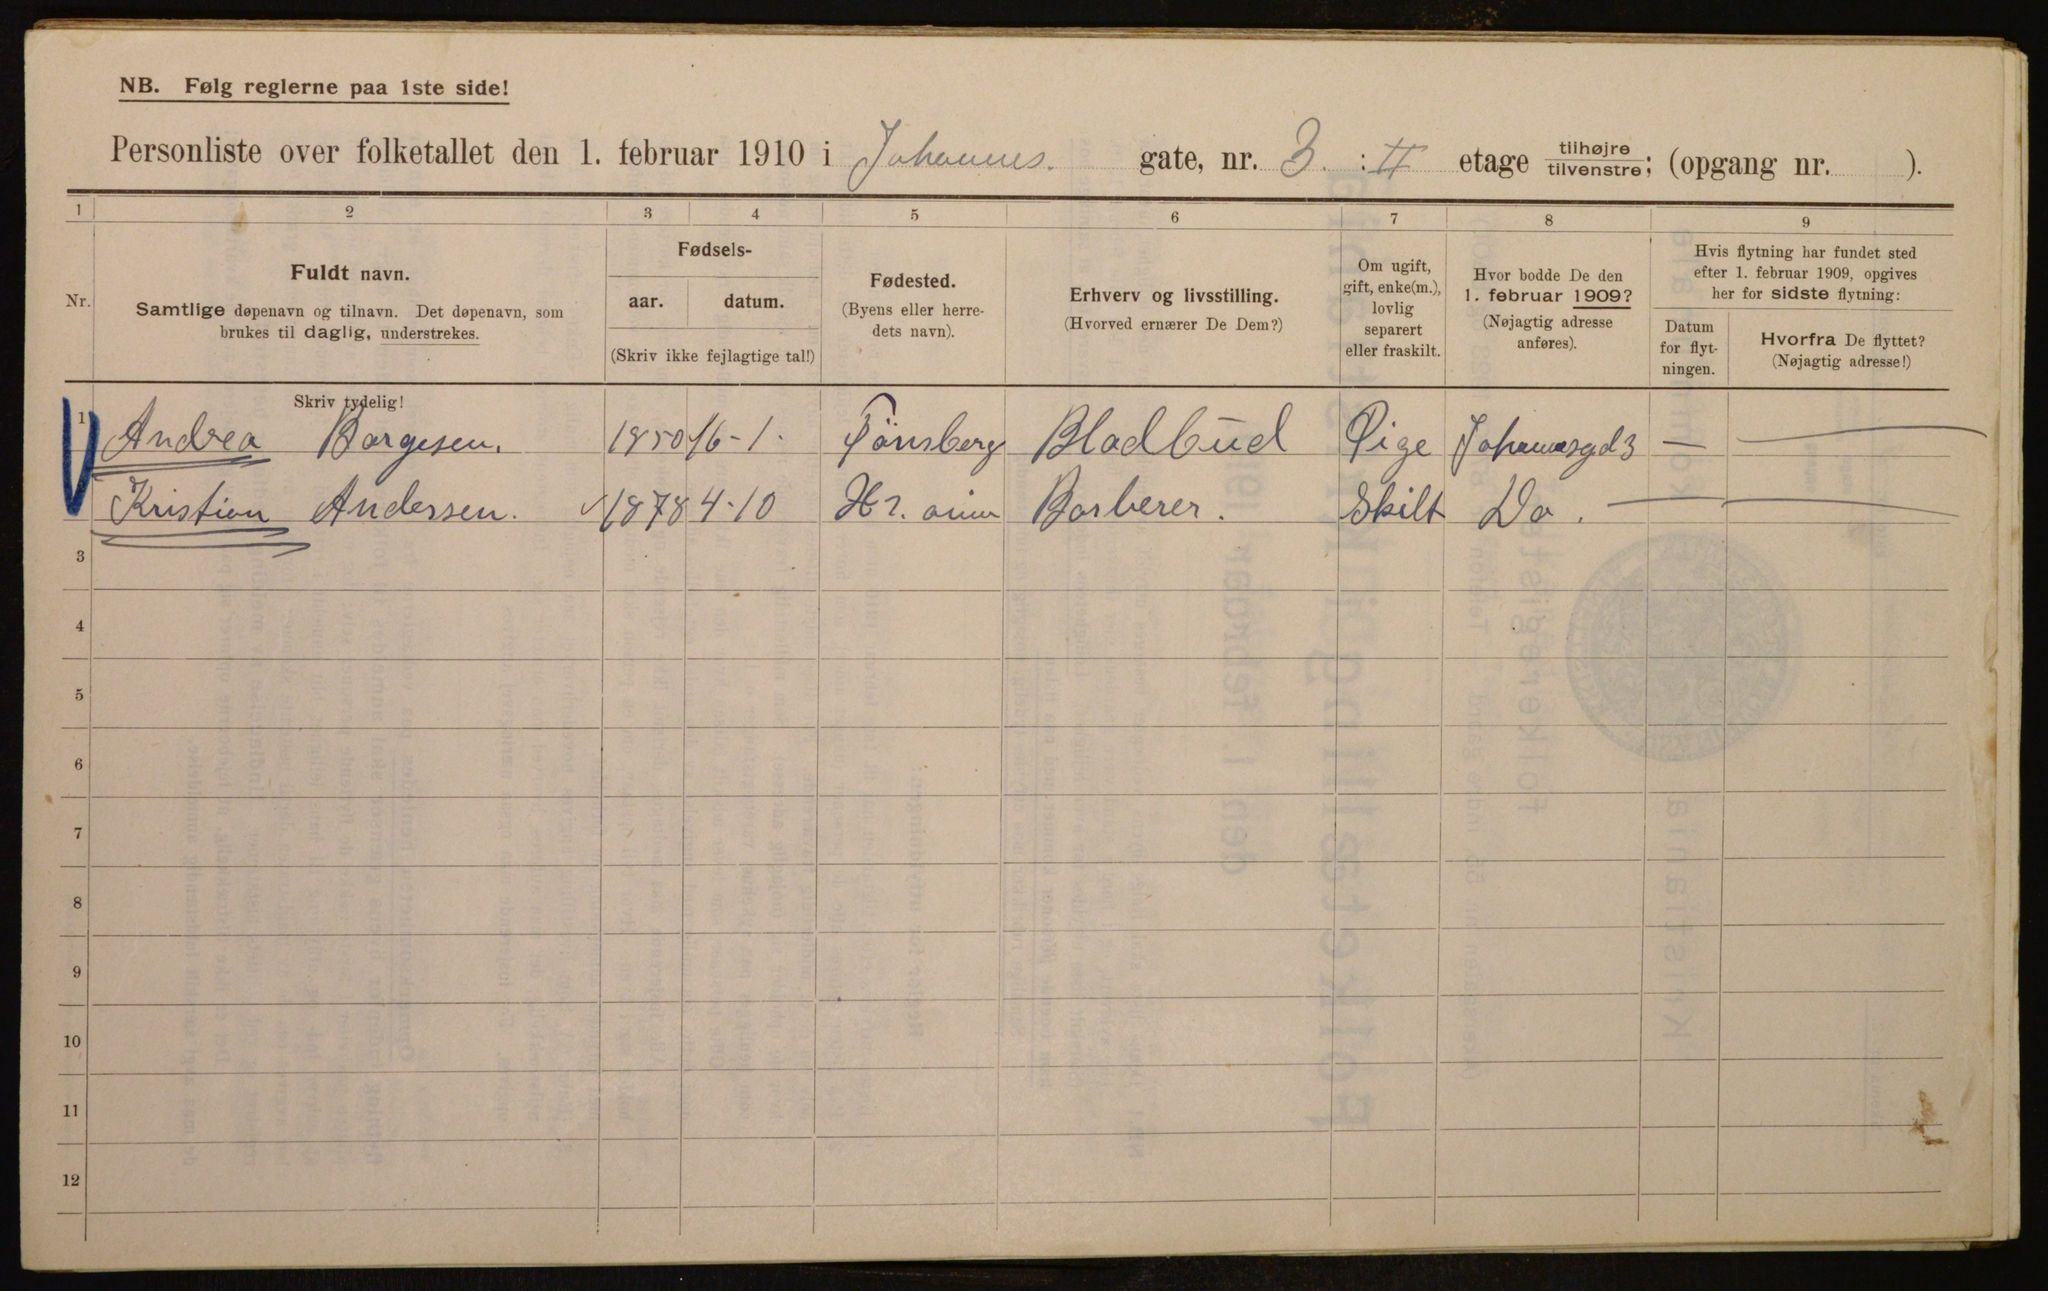 NB. Følg reglerne paa 1ste side!
Personliste over folketallet den 1. februar 1910 i Johannes. gate, nr. 3. : II etage tilhøjre tilvenstre; (opgang nr. ).
1 2 3 4 5 6 7 8 9
Nr.
Fuldt navn.
Samtlige døpenavn og tilnavn. Det døpenavn, som
brukes til daglig, understrekes.
Skriv tydelig!
Fødsels-
aar. datum.
(Skriv ikke fejlagtige tal!)
Fødested.
(Byens eller herre-
dets navn).
Erhverv og livsstilling.
(Hvorved ernærer De Dem?)
Om ugift,
gift, enke(m.),
lovlig
separert
eller fraskilt.
Hvor bodde De den
1. februar 1909?
(Nøjagtig adresse
anføres).
Hvis flytning har fundet sted
efter 1. februar 1909, opgives
her for sidste flytning:
Datum
for flyt-
ningen.
Hvorfra De flyttet?
(Nøjagtig adresse!)
1 Andrea Borgesen. 1850 16-1. Tönsberg Bladbud Pige Johannesgd 3 —
Kristian Andersen. 1878 4-10 Barberer. Skilt Do. —
3
4
5
6
7
8
9
10
11
12